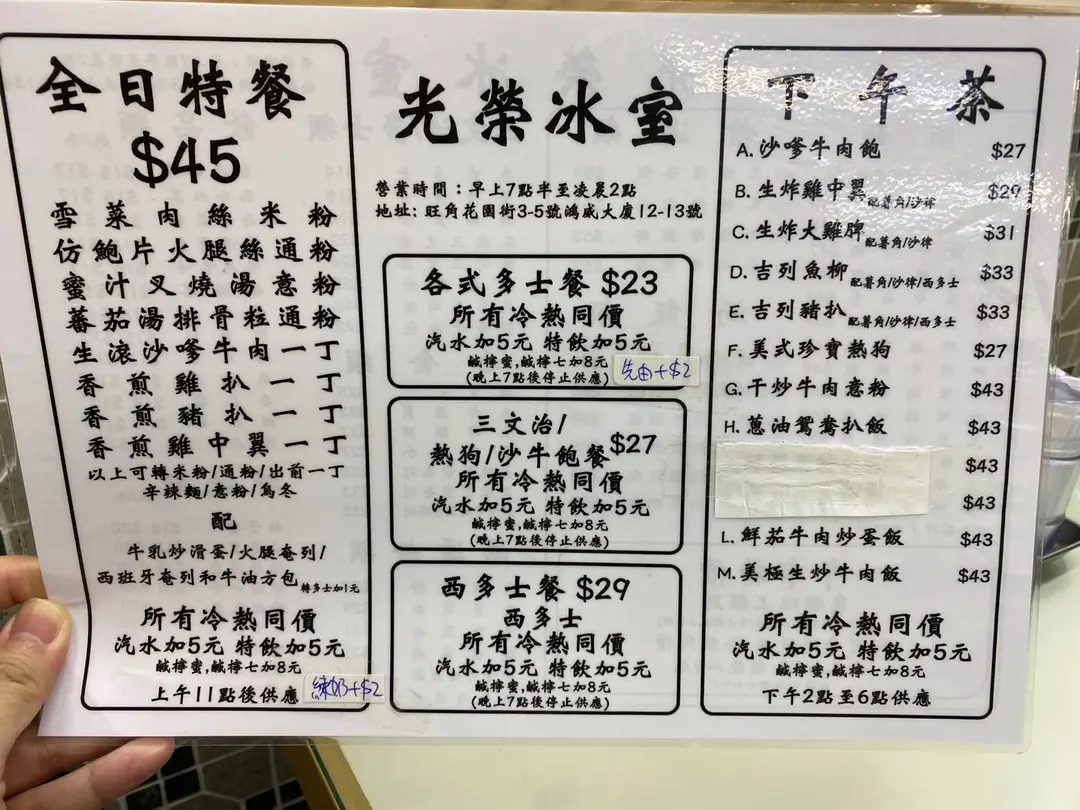 全日特餐
$45
雪菜肉絲米粉
仿鮑片火腿絲通粉
蜜汁叉燒湯意粉
蕃茄湯排骨粒通粉
生滾沙嗲牛肉一丁
香煎雞扒一丁
香煎豬扒一丁
香煎雞中翼一丁
以上可轉米粉/通粉/出前一丁
辛辣麵/意粉/烏冬
配
牛乳炒滑蛋/火腿奄列/
西班牙奄列和牛油方包轉多士加1元
所有冷熱同價
汽水加5元 特飲加5元
鹹檸蜜,鹹檸七加8元
上午11點後供應
練奶+$2
光榮冰室
營業時間:早上7點半至凌晨2點
地址:旺角花園街3-5號鴻威大廈12-13號
各式多士餐 $23
所有冷熱同價
汽水加5元 特飲加5元
鹹檸蜜,鹹檸七加8元
(晚上7點後停止供應)
三文治/
熱狗/沙牛飽餐 $27
所有冷熱同價
汽水加5元 特飲加5元
鹹檸蜜,鹹檸七加8元
(晚上7點後停止供應)
西多士餐 $29
西多士
所有冷熱同價
汽水加5元 特飲加5元
鹹檸蜜,鹹檸七加8元
(晚上7點後停止供應)
下午茶
A. 沙嗲牛肉飽 $27
B. 生炸雞中翼配薯角/沙律 $29
C. 生炸大雞髀配薯角/沙律 $31
D. 吉列魚柳配薯角/沙律/西多士 $33
E. 吉列豬扒配薯角/沙律/西多士 $33
F. 美式珍寶熱狗 $27
G. 干炒牛肉意粉 $43
H. 蔥油鴛鴦扒飯 $43
$43
$43
L. 鮮茄牛肉炒蛋飯 $43
M. 美極生炒牛肉飯 $43
所有冷熱同價
汽水加5元 特飲加5元
鹹檸蜜,鹹檸七加8元
下午2點至6點供應